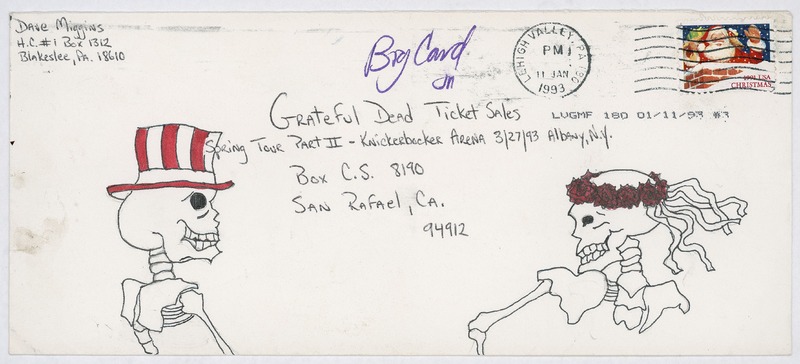 Dave Miggins
H.C.#1 Box 1312
Blakeslee, Pa. 18610
Big Card
LEHIGH VALLEY, PA
PM
11 JAN
1993
1991 USA
CHRISTMAS
Grateful Dead Ticket Sales
LUGMF 180 01/11/93 #3
Spring Tour Part II - Knickerbocker Arena 3/27/93 Albany, N.Y.
Box C.S. 8190
San Rafael, CA.
94912